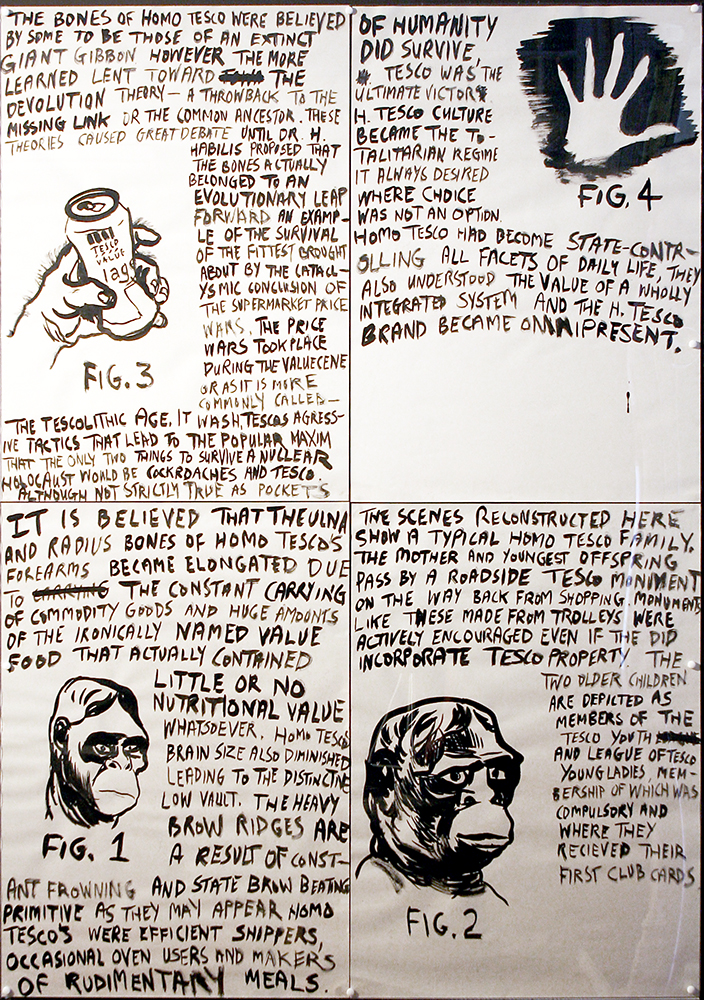 THE BONES OF HOMO TESCO WERE BELIEVED
BY SOME TO BE THOSE OF AN EXTINCT
GIANT GIBBON HOWEVER THE MORE
LEARNED LENT TOWARD THE
DEVOLUTION THEORY – A THROWBACK TO THE
MISSING LINK OR THE COMMON ANCESTOR. THESE
THEORIES CAUSED GREAT DEBATE UNTIL DR. H.
HABILIS PROPOSED THAT
THE BONES ACTUALLY
BELONGED TO AN
EVOLUTIONARY LEAP
FORWARD AN EXAMP-
LE OF THE SURVIVAL
OF THE FITTEST BROUGHT
ABOUT BY THE CATACL-
YSMIC CONCLUSION OF
THE SUPERMARKET PRICE
WARS. THE PRICE
WARS TOOK PLACE
DURING THE VALUECENE
OR AS IT IS MORE
COMMONLY CALLED –
TESCO
VALUE
lag
FIG. 3
THE TESCOLITHIC AGE. IT WAS H. TESCOS AGRESS-
IVE TACTICS THAT LEAD TO THE POPULAR MAXIM
THAT THE ONLY TWO THINGS TO SURVIVE A NUCLEAR
HOLOCAUST WOULD BE COCKROACHES AND TESCO.
ALTHOUGH NOT STRICTLY TRUE AS POCKETS
OF HUMANITY
DID SURVIVE,
TESCO WAS THE
ULTIMATE VICTOR.
H. TESCO CULTURE
BECAME THE TO-
TALITARIAN REGIME
IT ALWAYS DESIRED
WHERE CHOICE
WAS NOT AN OPTION.
FIG. 4
HOMO TESCO HAD BECOME STATE-CONTR-
OLLING ALL FACETS OF DAILY LIFE, THEY
ALSO UNDERSTOOD THE VALUE OF A WHOLLY
INTEGRATED SYSTEM AND THE H. TESCO
BRAND BECAME OMNIPRESENT.
IT IS BELIEVED THAT THE ULNA
AND RADIUS BONES OF HOMO TESCO'S
FOREARMS BECAME ELONGATED DUE
TO THE CONSTANT CARRYING
OF COMMODITY GOODS AND HUGE AMOUNTS
OF THE IRONICALLY NAMED VALUE
FOOD THAT ACTUALLY CONTAINED
LITTLE OR NO
NUTRITIONAL VALUE
WHATSOEVER. HOMO TESCO'S
BRAIN SIZE ALSO DIMINISHED
LEADING TO THE DISTINCTIVE
LOW VAULT. THE HEAVY
BROW RIDGES ARE
A RESULT OF CONST-
FIG. 1
ANT FROWNING AND STATE BROW BEATING
PRIMITIVE AS THEY MAY APPEAR HOMO
TESCO'S WERE EFFICIENT SHIPPERS,
OCCASIONAL OVEN USERS AND MAKERS
OF RUDIMENTARY MEALS.
THE SCENES RECONSTRUCTED HERE
SHOW A TYPICAL HOMO TESCO FAMILY.
THE MOTHER AND YOUNGEST OFFSPRING
PASS BY A ROADSIDE TESCO MONIMENT
ON THE WAY BACK FROM SHOPPING. MONUMENTS
LIKE THESE MADE FROM TROLLEYS WERE
ACTIVELY ENCOURAGED EVEN IF THE DID
INCORPORATE TESCO PROPERTY. THE
TWO OLDER CHILDREN
ARE DEPICTED AS
MEMBERS OF THE
TESCO YOUTH
AND LEAGUE OF TESCO
YOUNG LADIES, MEM-
BERSHIP OF WHICH WAS
COMPULSORY AND
WHERE THEY
RECIEVED THEIR
FIRST CLUB CARDS
FIG. 2